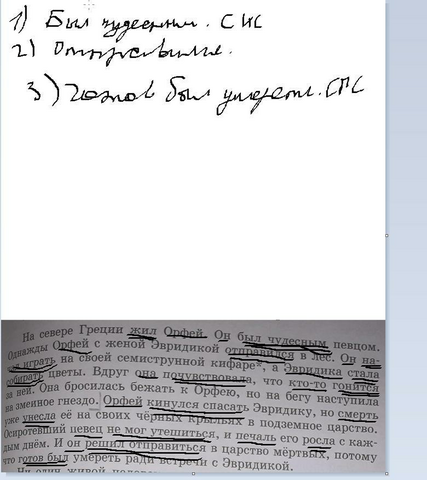 1) Был чудесным. СИС
2) Отправился.
3) Готов был умереть. СПС
На севере Греции жил Орфей. Он был чудесным певцом.
Однажды Орфей с женой Эвридикой отправился в лес. Он на-
играть на своей семиструнной кифаре*, а Эвридика стала
собирать цветы. Вдруг она почувствовала, что кто-то гонится
за ней. Она бросилась бежать к Орфею, но на бегу наступила
на змеиное гнездо. Орфей кинулся спасать Эвридику, но смерть
уже унесла её на своих чёрных крыльях в подземное царство.
Осиротевший певец не мог утешиться, и печаль его росла с каж-
дым днём. И он решил отправиться в царство мёртвых, потому
что готов был умереть ради встречи с Эвридикой.